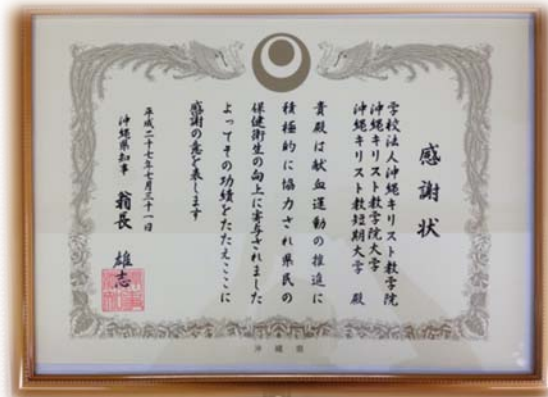 感謝状
学校法人沖縄キリスト教学院
沖縄キリスト教学院大学
沖縄キリスト教短期大学 殿
貴殿は献血運動の推進に
積極的に協力され県民の
保健衛生の向上に寄与されました
よってその功績をたたえここに
感謝の意を表します
平成二十七年七月三十一日
沖縄県知事 翁長 雄志
沖縄県